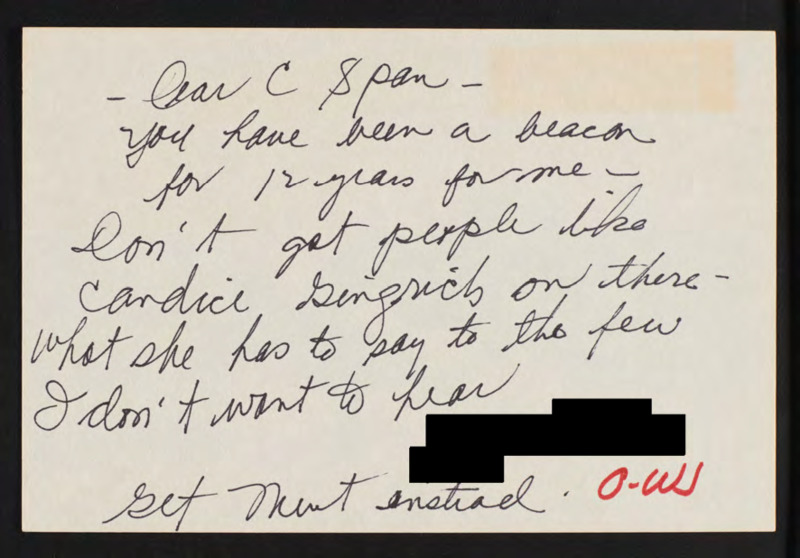 - Dear C Span -
You have been a beacon
for 12 years for me -
Don't get people like
Candice Gingrich on there -
What she has to say to the few
I don't want to hear
Get Newt instead.